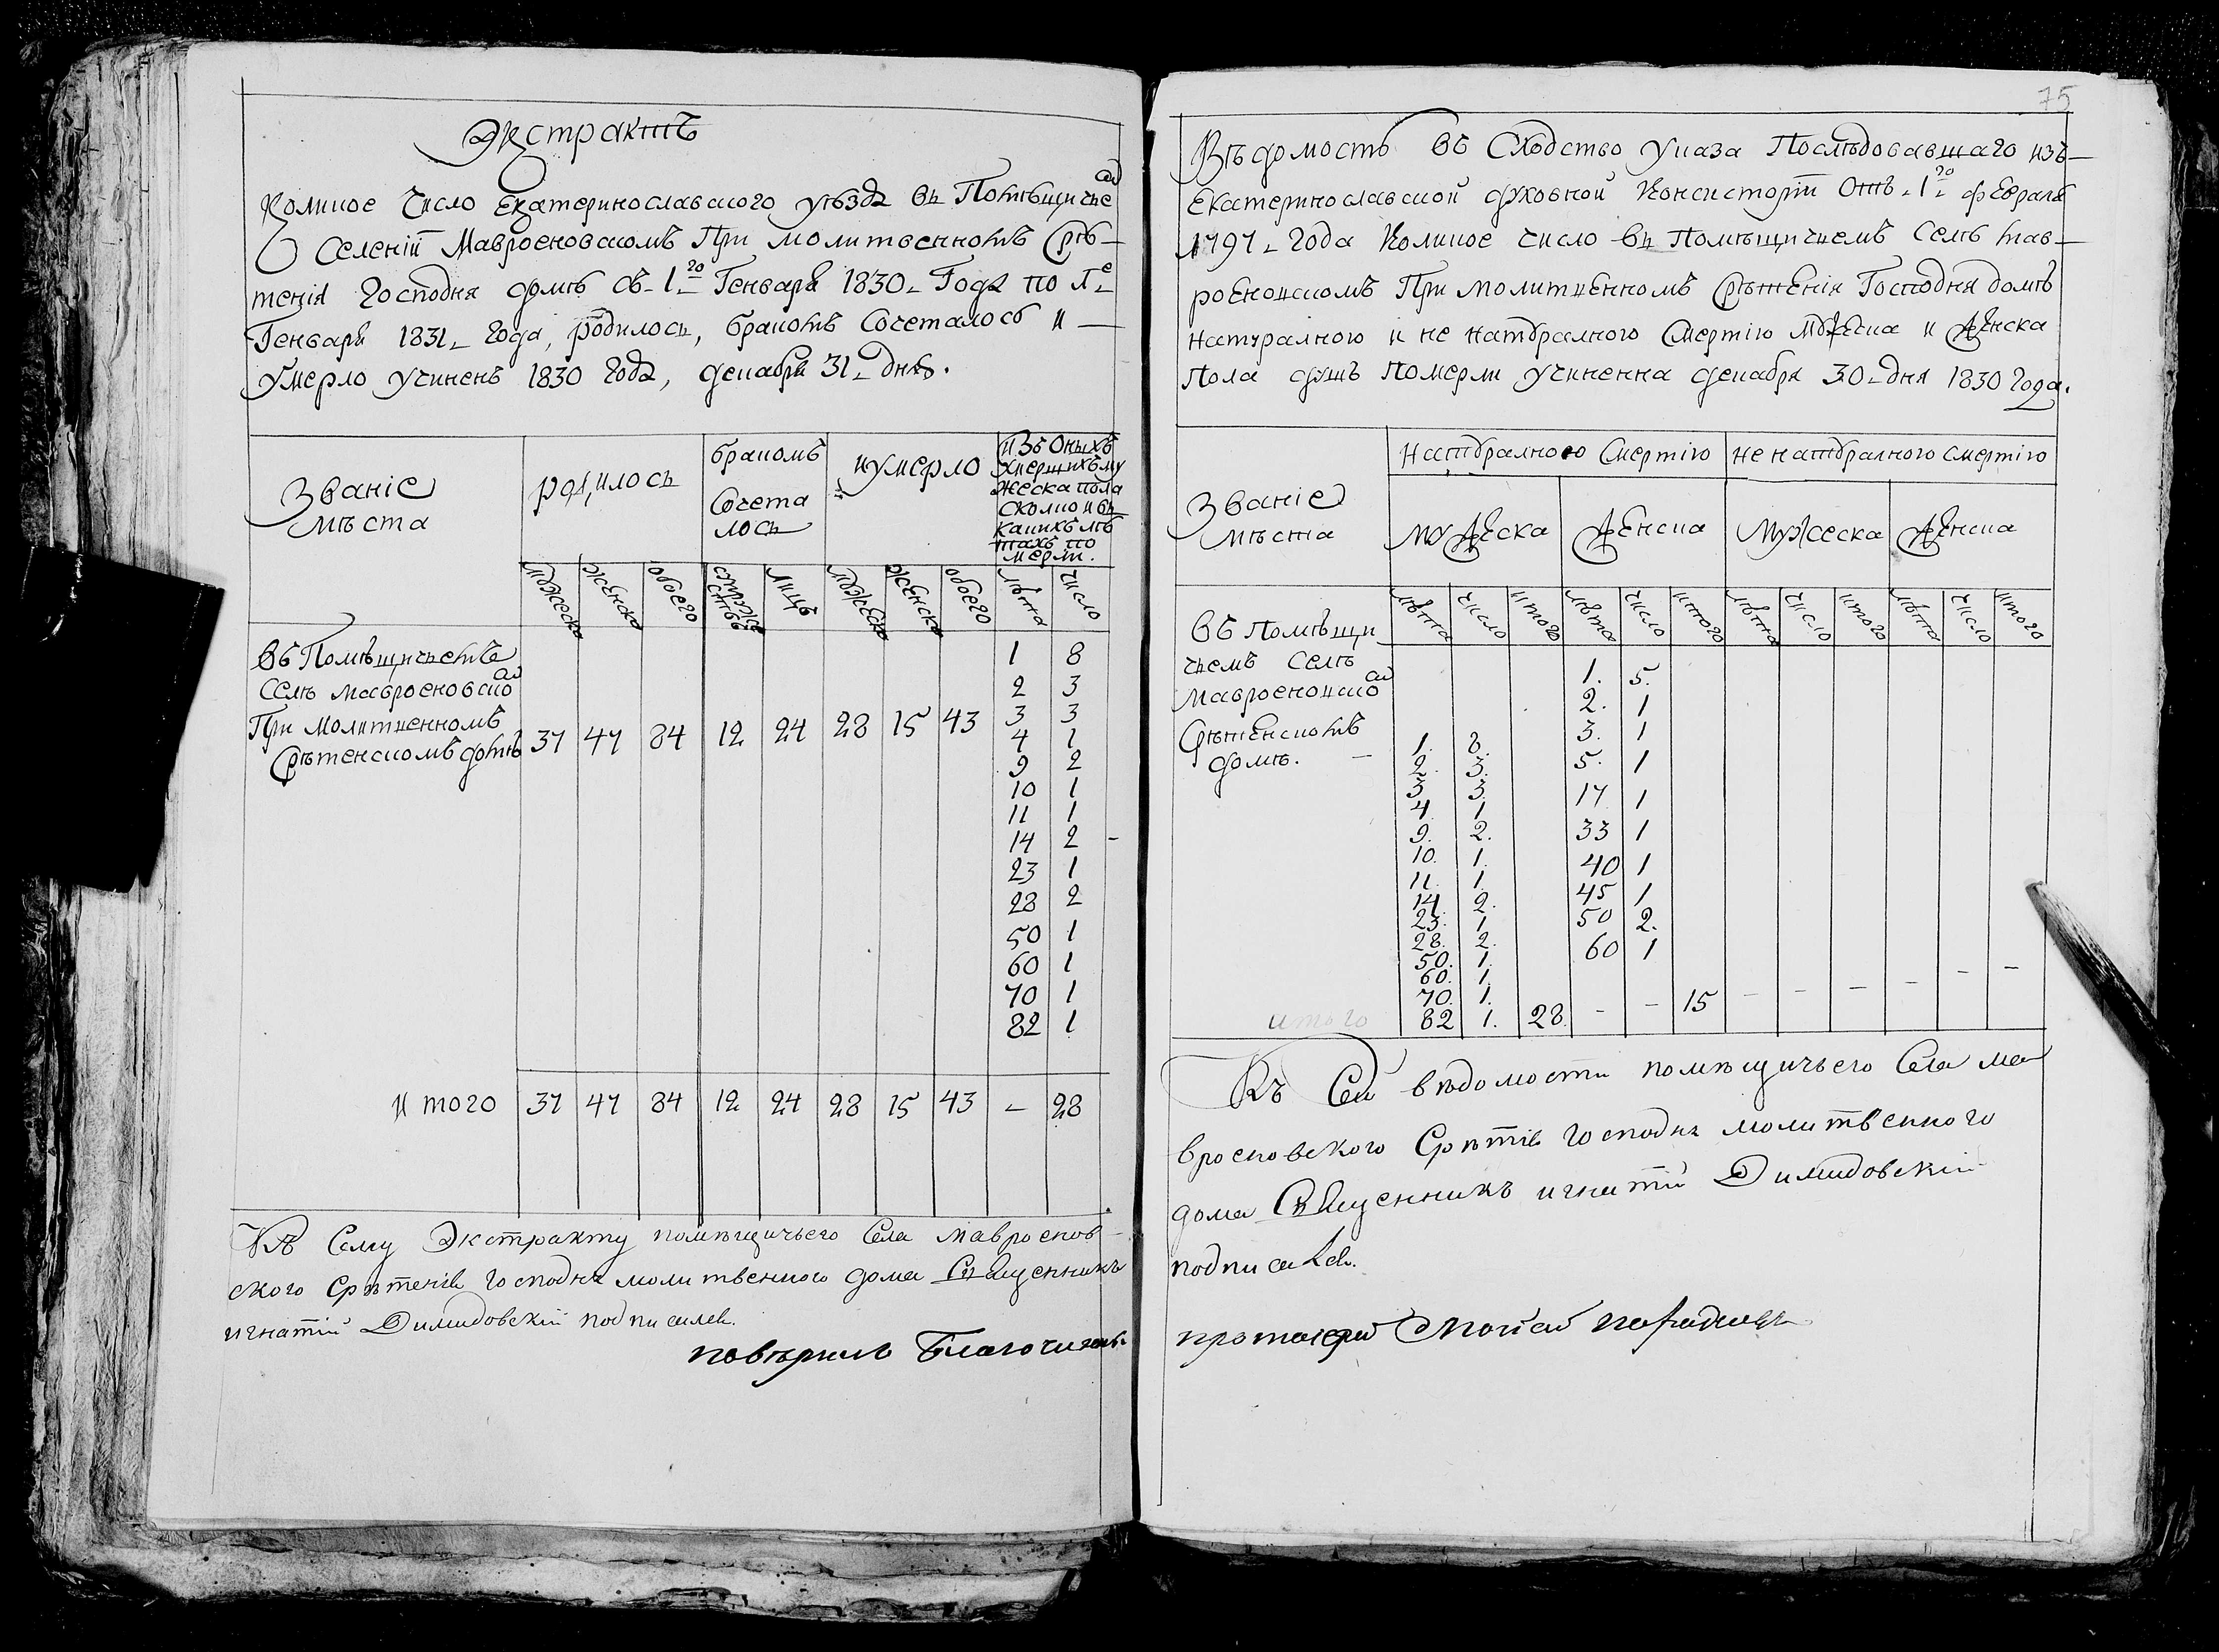 Экстрактъ
Коликое число Екатеринославского уѣзда въ Помѣщичье
мъ
Селеніи Мавроеновскомъ При молитвенномъ Срѣ-
тенія Господня домѣ съ 1го Генваря 1830 Года по 1е
Генваря 1831 года, родилось, бракомъ Сочеталось и
Умерло учиненъ 1830 года, декабря 31 дня.
Званіе
мѣста
родилось
бракомъ
Сочета
лось
и умерло
изъ Оныхъ
умершихъ му
жеска пола
сколко и въ
какихъ лѣ
тахъ по
мерли.
мужеска женска обоего супруже
ствъ лицъ мужеска женска обоего лѣта число
Въ Помѣщичьемъ
Селѣ Мавроеновско
мъ
При Молитвенномъ
Срѣтенскомъ домѣ 37 47 84 12 24 28 15 43
1 8
2 3
3 3
4 1
9 2
10 1
11 1
14 2
23 1
28 2
50 1
60 1
70 1
82 1
Итого 37 47 84 12 24 28 15 43 — 28
Къ Сему Экстракту помѣщичьего Села Мавроенов-
ского Срѣтенія Господня молитвенного дома Священникъ
Игнатій Димидовскій подписался.
повѣрилъ Благочинный
75
Вѣдомость въ Сходство указа Послѣдовавшаго изъ
Екатеринославской духовной Консисторіи Отъ 1го февраля
1797 года Коликое число въ Помѣщичьемъ Селѣ Мав-
роеновскомъ При молитвенномъ Срѣтенія Господня домѣ
натуралною и не натуралною Смертію Мужеска и Женска
Пола душъ Померли учиненна декабря 30 дня 1830 года.
Званіе
мѣста
Натуралною Смертію не натуралною смертію
мужеска женска мужеска женска
лѣта число итого лѣта число итого лѣта число итого лѣта число итого
Въ Помѣщи
чьемъ Селѣ
Мавроеновско
мъ
Срѣтенскомъ
домѣ. —
1. 8.
2. 3.
3 3
4. 1
9. 2.
10. 1.
11. 1.
14. 2.
23. 1.
28. 2.
50. 1.
60. 1.
70. 1.
82 1. 28.
1. 5.
2. 1
3. 1
5. 1
17 1
33 1
40 1
45 1
50 2.
60 1
- - 15 — — — — — —
итого
Къ Сей вѣдомости помѣщичьего Села Ма
вроеновского Срѣтнія Господня молитвенного
дома Священникъ Игнатій Димидовскій
подписался.
протоіерей